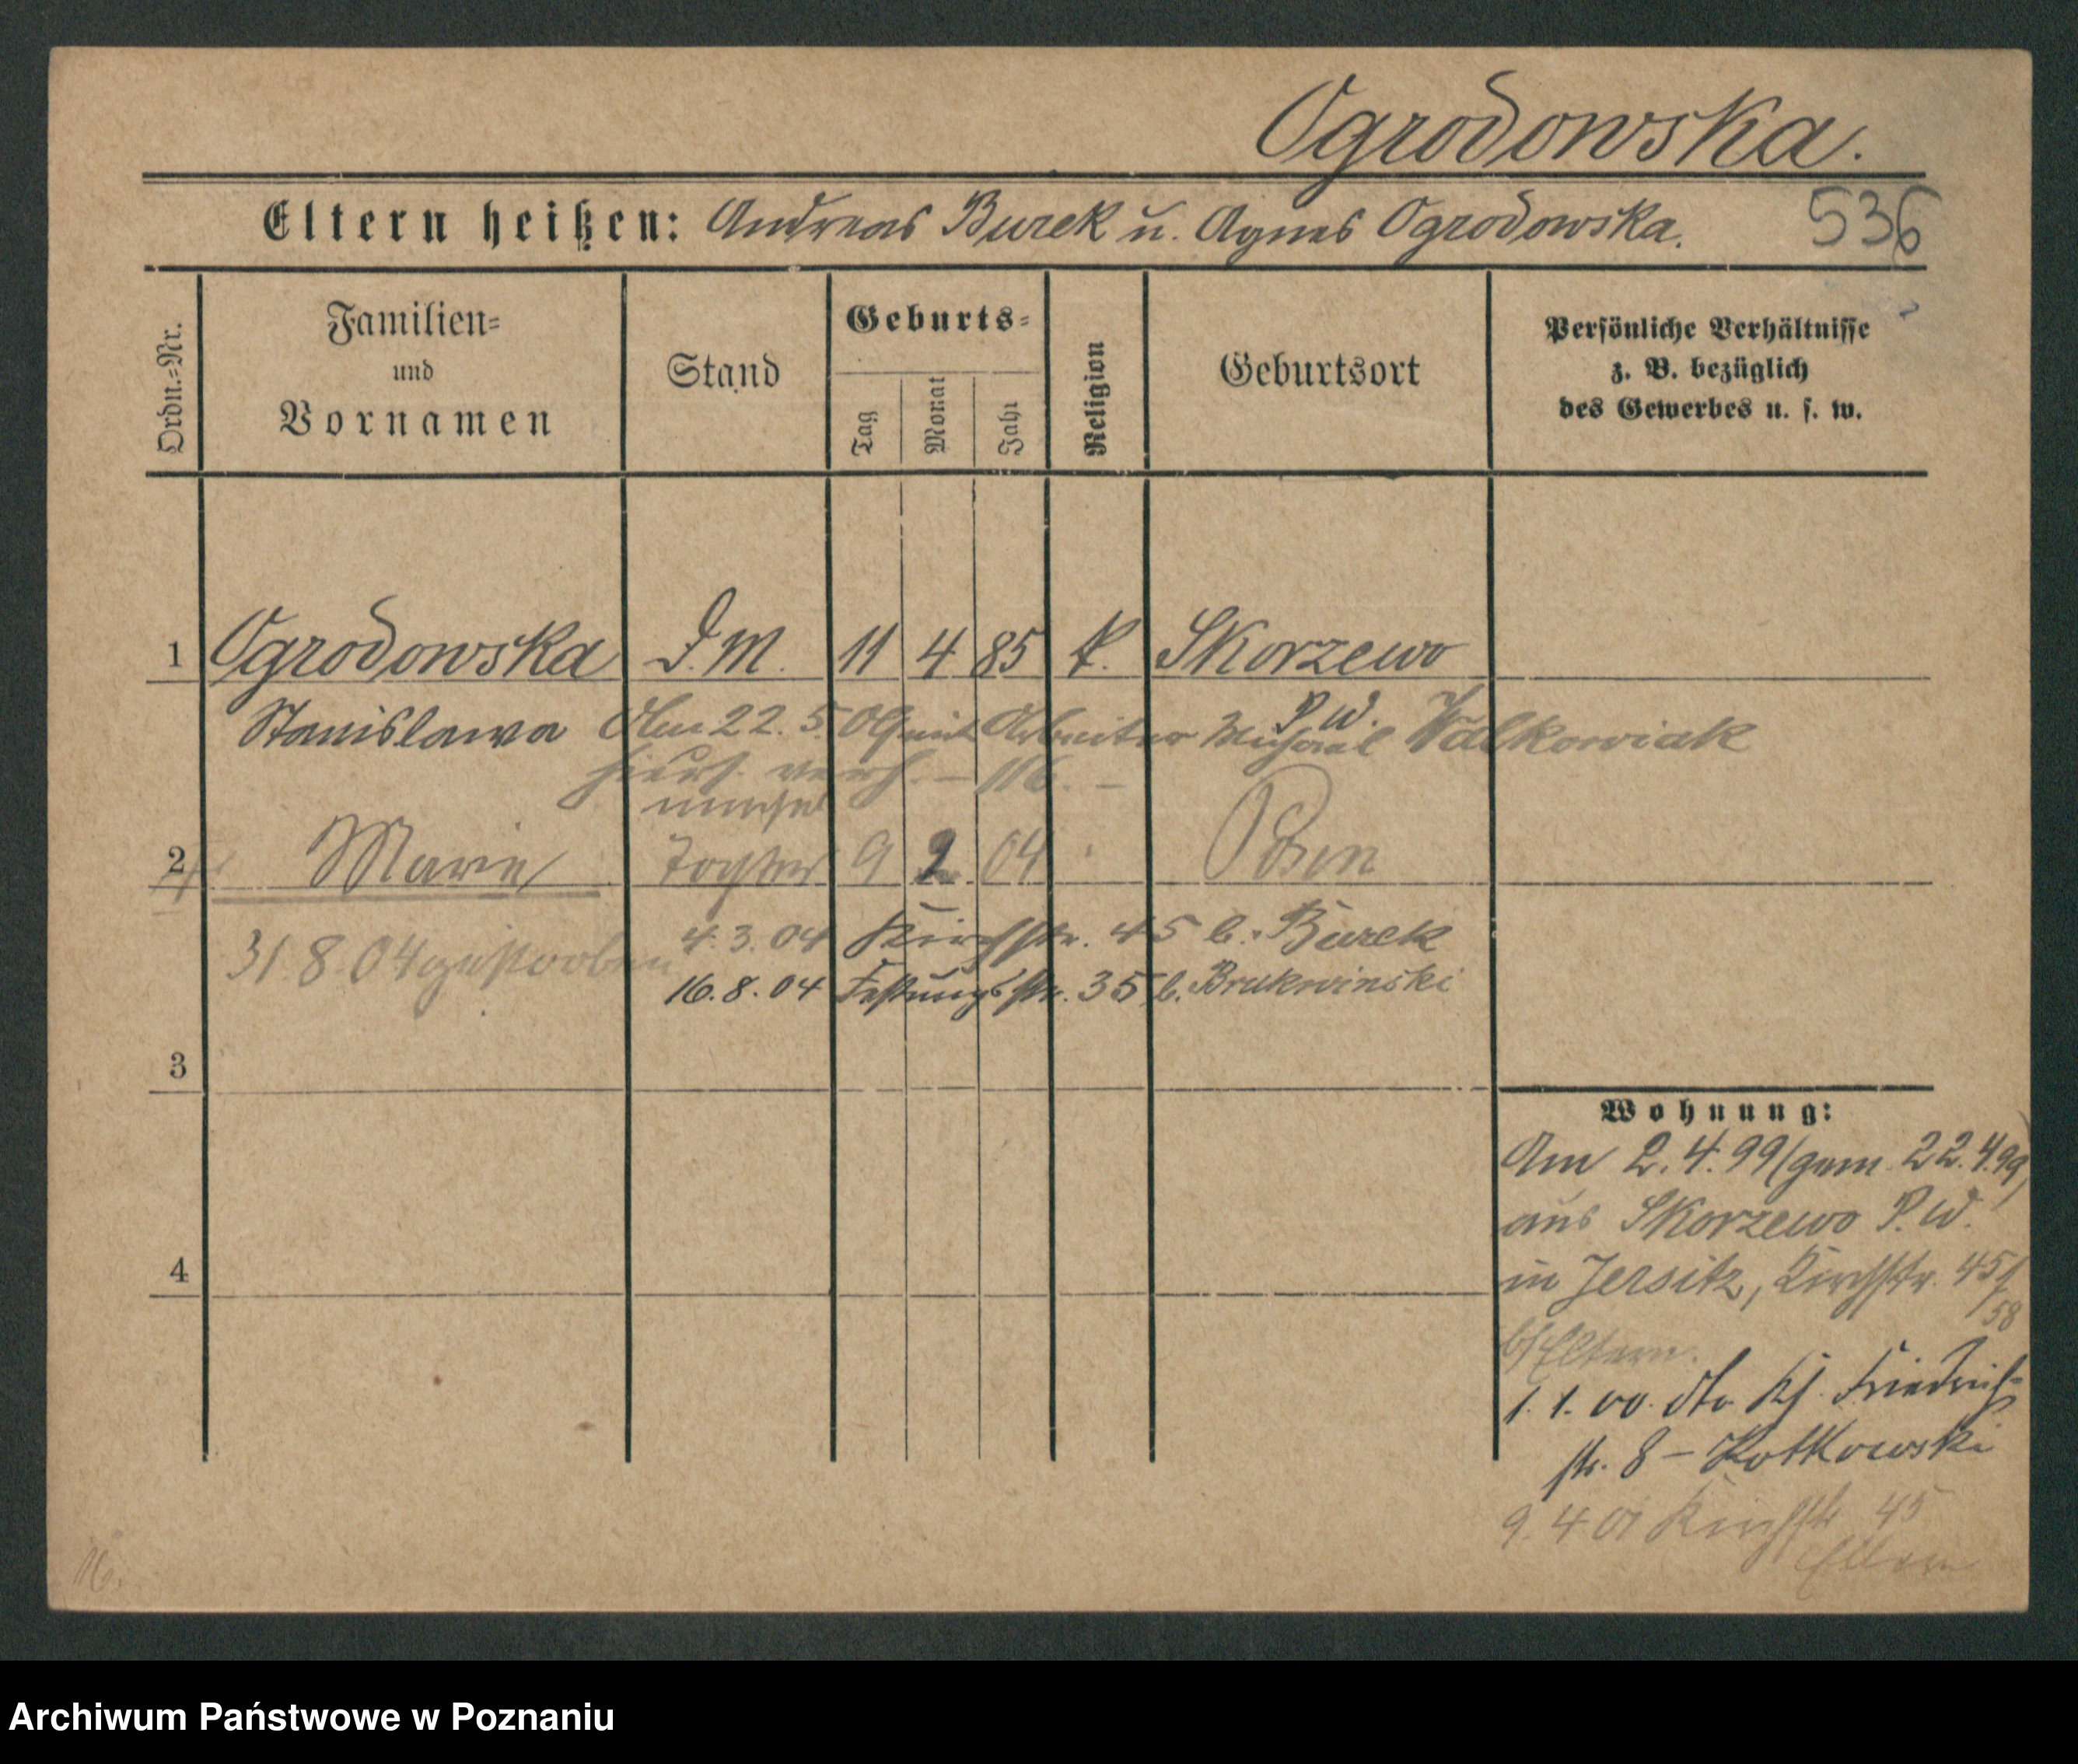 Ogrodowska.
Eltern heißen: Andreas Burek u. Agnes Ogrodowska. 536
Ordn.=Nr.
Familien=
und
Vornamen
Stand
Geburts=
Tag
Monat
Jahr
Religion
Geburtsort
Persönliche Verhältnisse
z. B. bezüglich
des Gewerbes u. s. w.
1 Ogrodowska D. M. 11 4 85 k. Skorzewo
P. W.
Stanislawa Am 22. 5. 05 mit Arbeiter Michael Walkowiak
hiers. verh. – 116. –
unehel
2 Marie Tochter 9 2 04 Posen
4. 3. 04 Kirchstr. 45 b. Burek
31. 8. 04 gestorben
16. 8. 04 Festungsstr. 35 b. Brukwinski
3
4
Wohnung:
Am 2. 4. 99 (gem. 22. 4. 99)
aus Skorzewo P. W.
in Jersitz, Kirchstr. 45/
58
b/ Eltern.
1. 1. 00. dto. Friedrich-
str. 8 – Kotkowski
9. 4 01 Kirchstr 45
Eltern
Archiwum Państwowe w Poznaniu